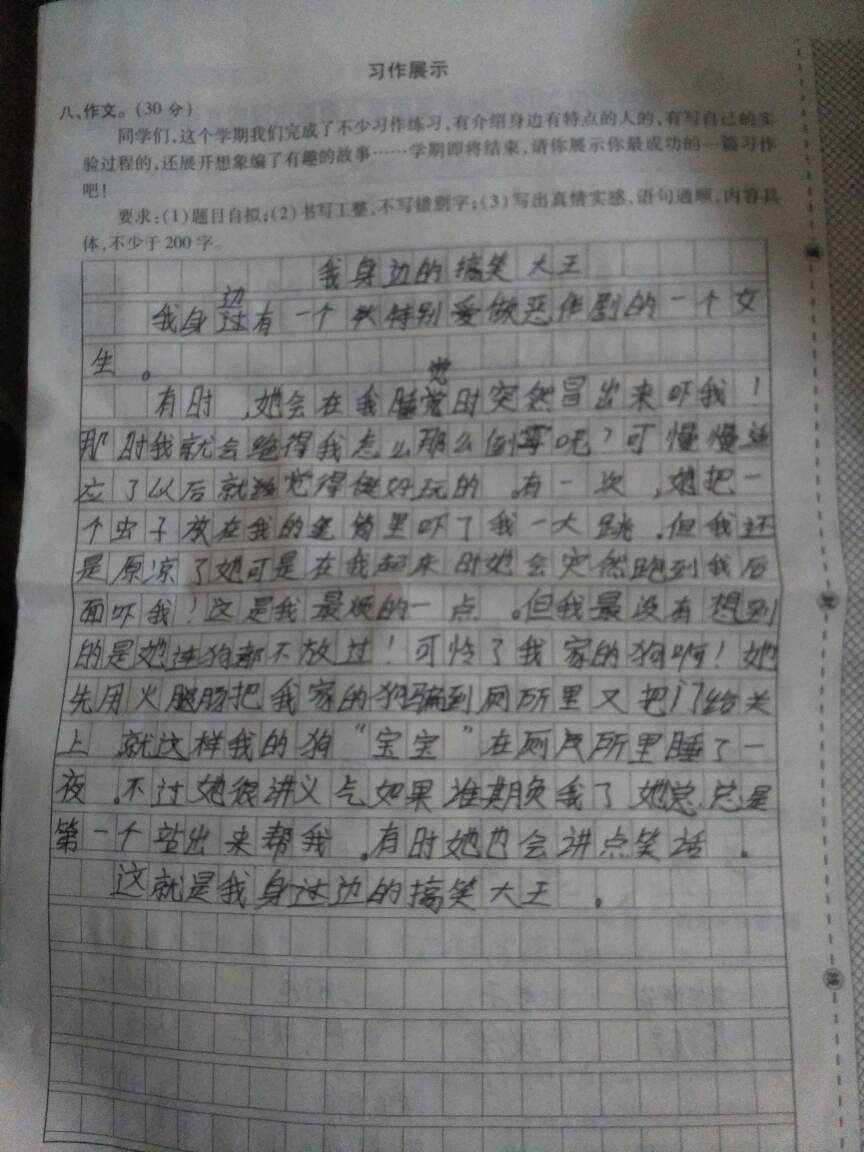 习作展示
八、作文。(30分)
同学们,这个学期我们完成了不少习作练习,有介绍身边有特点的人的,有写自己的实
验过程的,还展开想象编了有趣的故事……学期即将结束,请你展示你最成功的一篇习作
吧!
要求:(1)题目自拟;(2)书写工整,不写错别字;(3)写出真情实感,语句通顺,内容具
体,不少于200字。
我身边的搞笑大王
边
我身过有一个特别爱做恶作剧的一个女
生。
觉
有时,她会在我睡觉时突然冒出来吓我!
那时我就会觉得我怎么那么倒霉呢?可慢慢适
应了以后就觉得挺好玩的。有一次,她把一
个虫子放在我的笔筒里吓了我一大跳.但我还
是原凉了她可是在我起来时她会突然跑到我后
面吓我!这是我最烦的一点。但我最没有想到
的是她连狗都不放过!可怜了我家的狗啊!她
先用火腿肠把我家的狗骗到厕所里又把门给关
上 就这样我的狗“宝宝”在厕所里睡了一
夜.不过她很讲义气如果谁欺负我了她总总是
第一个站出来帮我.有时她也会讲点笑话.
这就是我身边的搞笑大王。